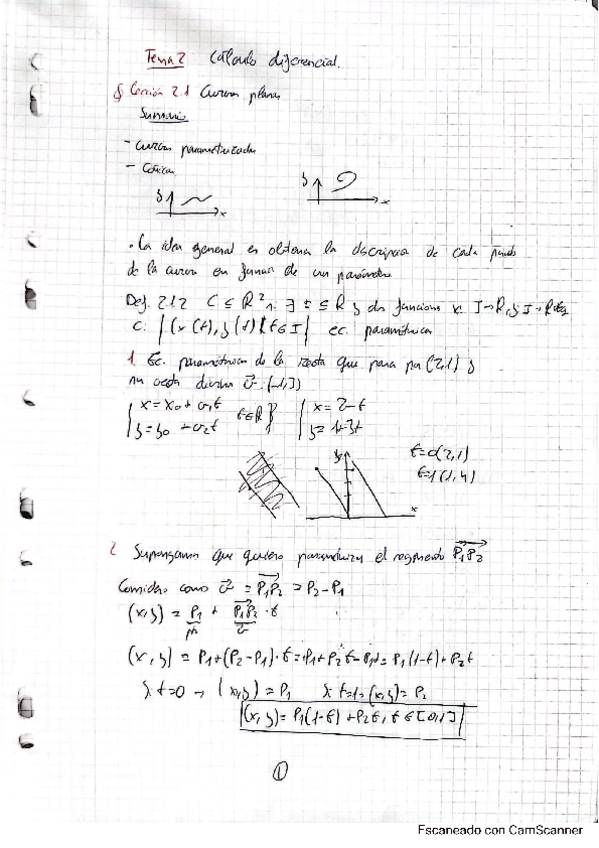 Tema 2 Cálculo diferencial.
§ Lección 2.1 Curvas planas
Sumario
- Curvas parametrizadas
- Cónicas
y x
y x
• La idea general es obtener la descripción de cada punto
de la curva en función de un parámetro
Def. 2.1.2 C ⊆ R² si ∃ I ⊆ R y dos funciones x: I→R, y: I→R
C: {(x(t), y(t)) t∈I} ec. paramétrica
1. Ec. paramétrica de la recta que pasa por (2,1) y
su vector director v⃗ (-1,3)
{ x = x₀ + v₁t t∈R } { x = 2-t
{ y = y₀ + v₂t { y = 1+3t
t=0(2,1)
t=1(1,4)
y x
2 Supongamos que quiero parametrizar el segmento P₁P₂
Considero como v⃗ = P₁P₂ = P₂-P₁
(x,y) = P₁ + P₁P₂ · t
v⃗
(x,y) = P₁+(P₂-P₁)·t = P₁+P₂t-P₁t = P₁(1-t)+P₂t
Si t=0 → (x,y) = P₁ Si t=1→(x,y)= P₂
(x,y)= P₁(1-t)+P₂t, t∈[0,1]
1
Escaneado con CamScanner